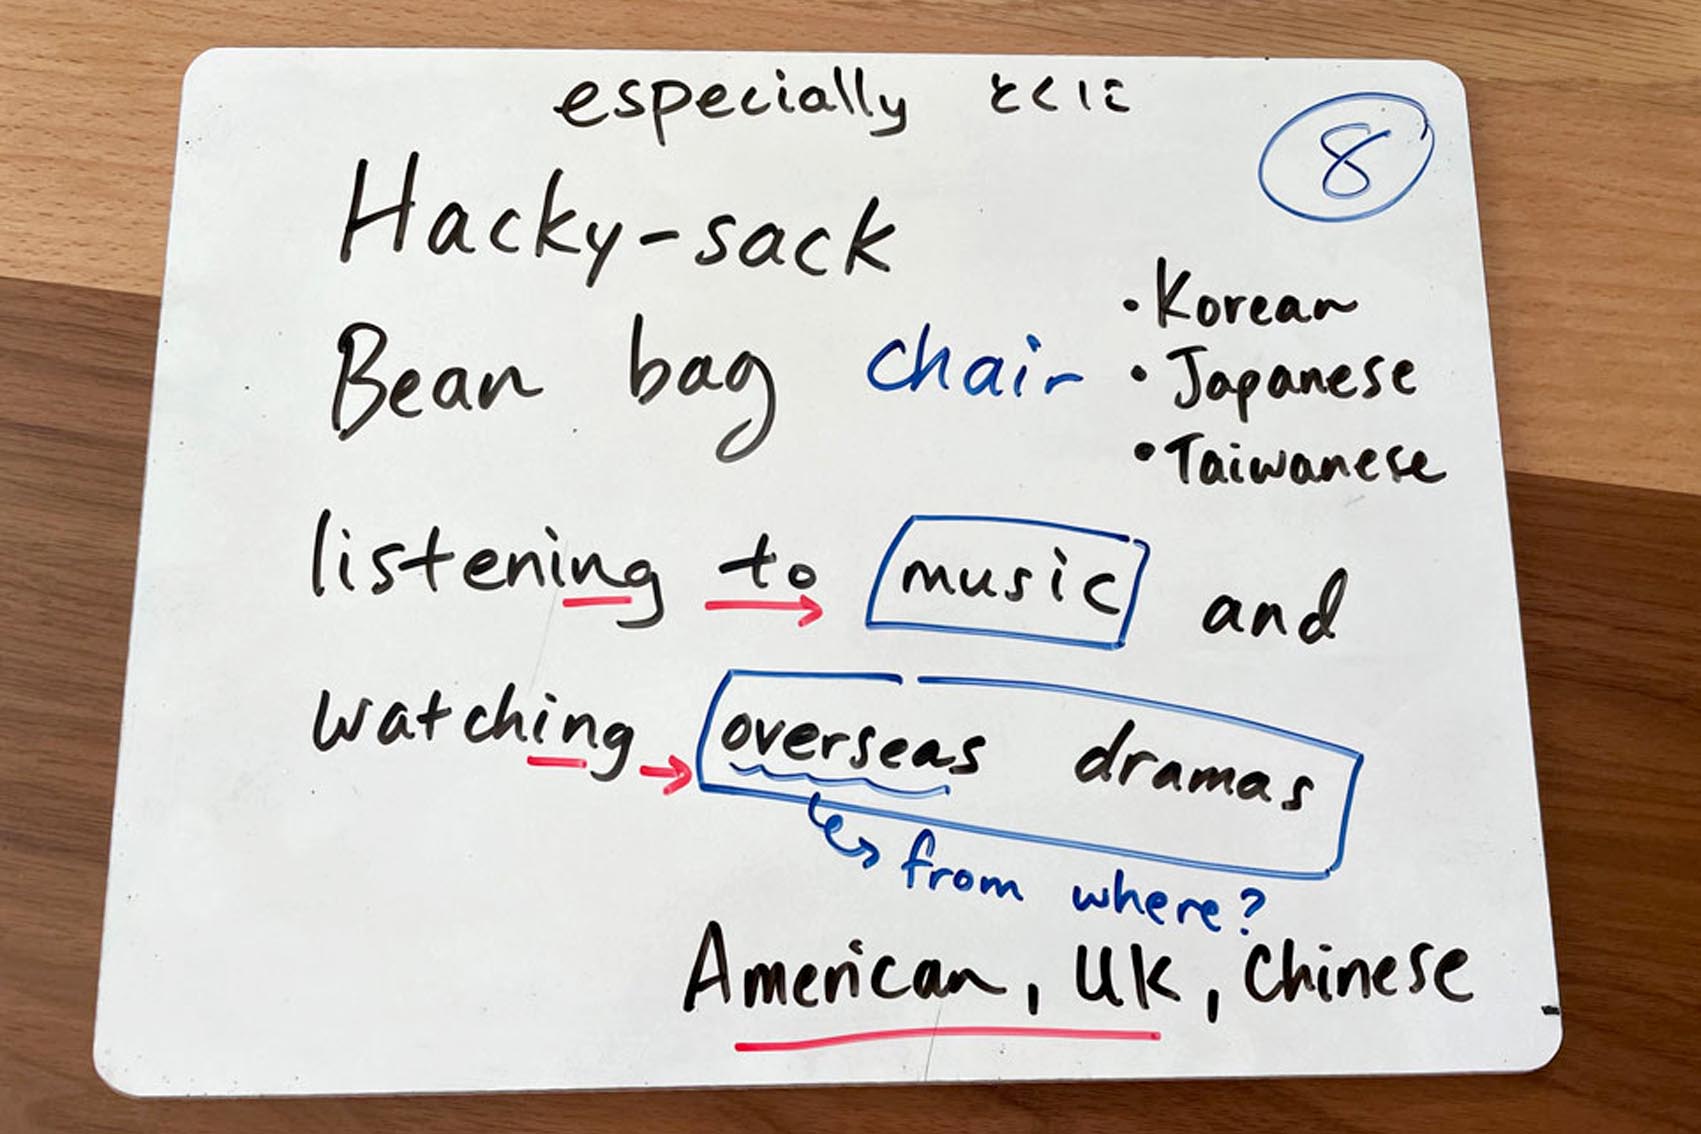 especially とくに
8
Hacky-sack
Bean bag chair
• Korean
• Japanese
• Taiwanese
listening to music and
watching overseas dramas
from where?
American, UK, Chinese